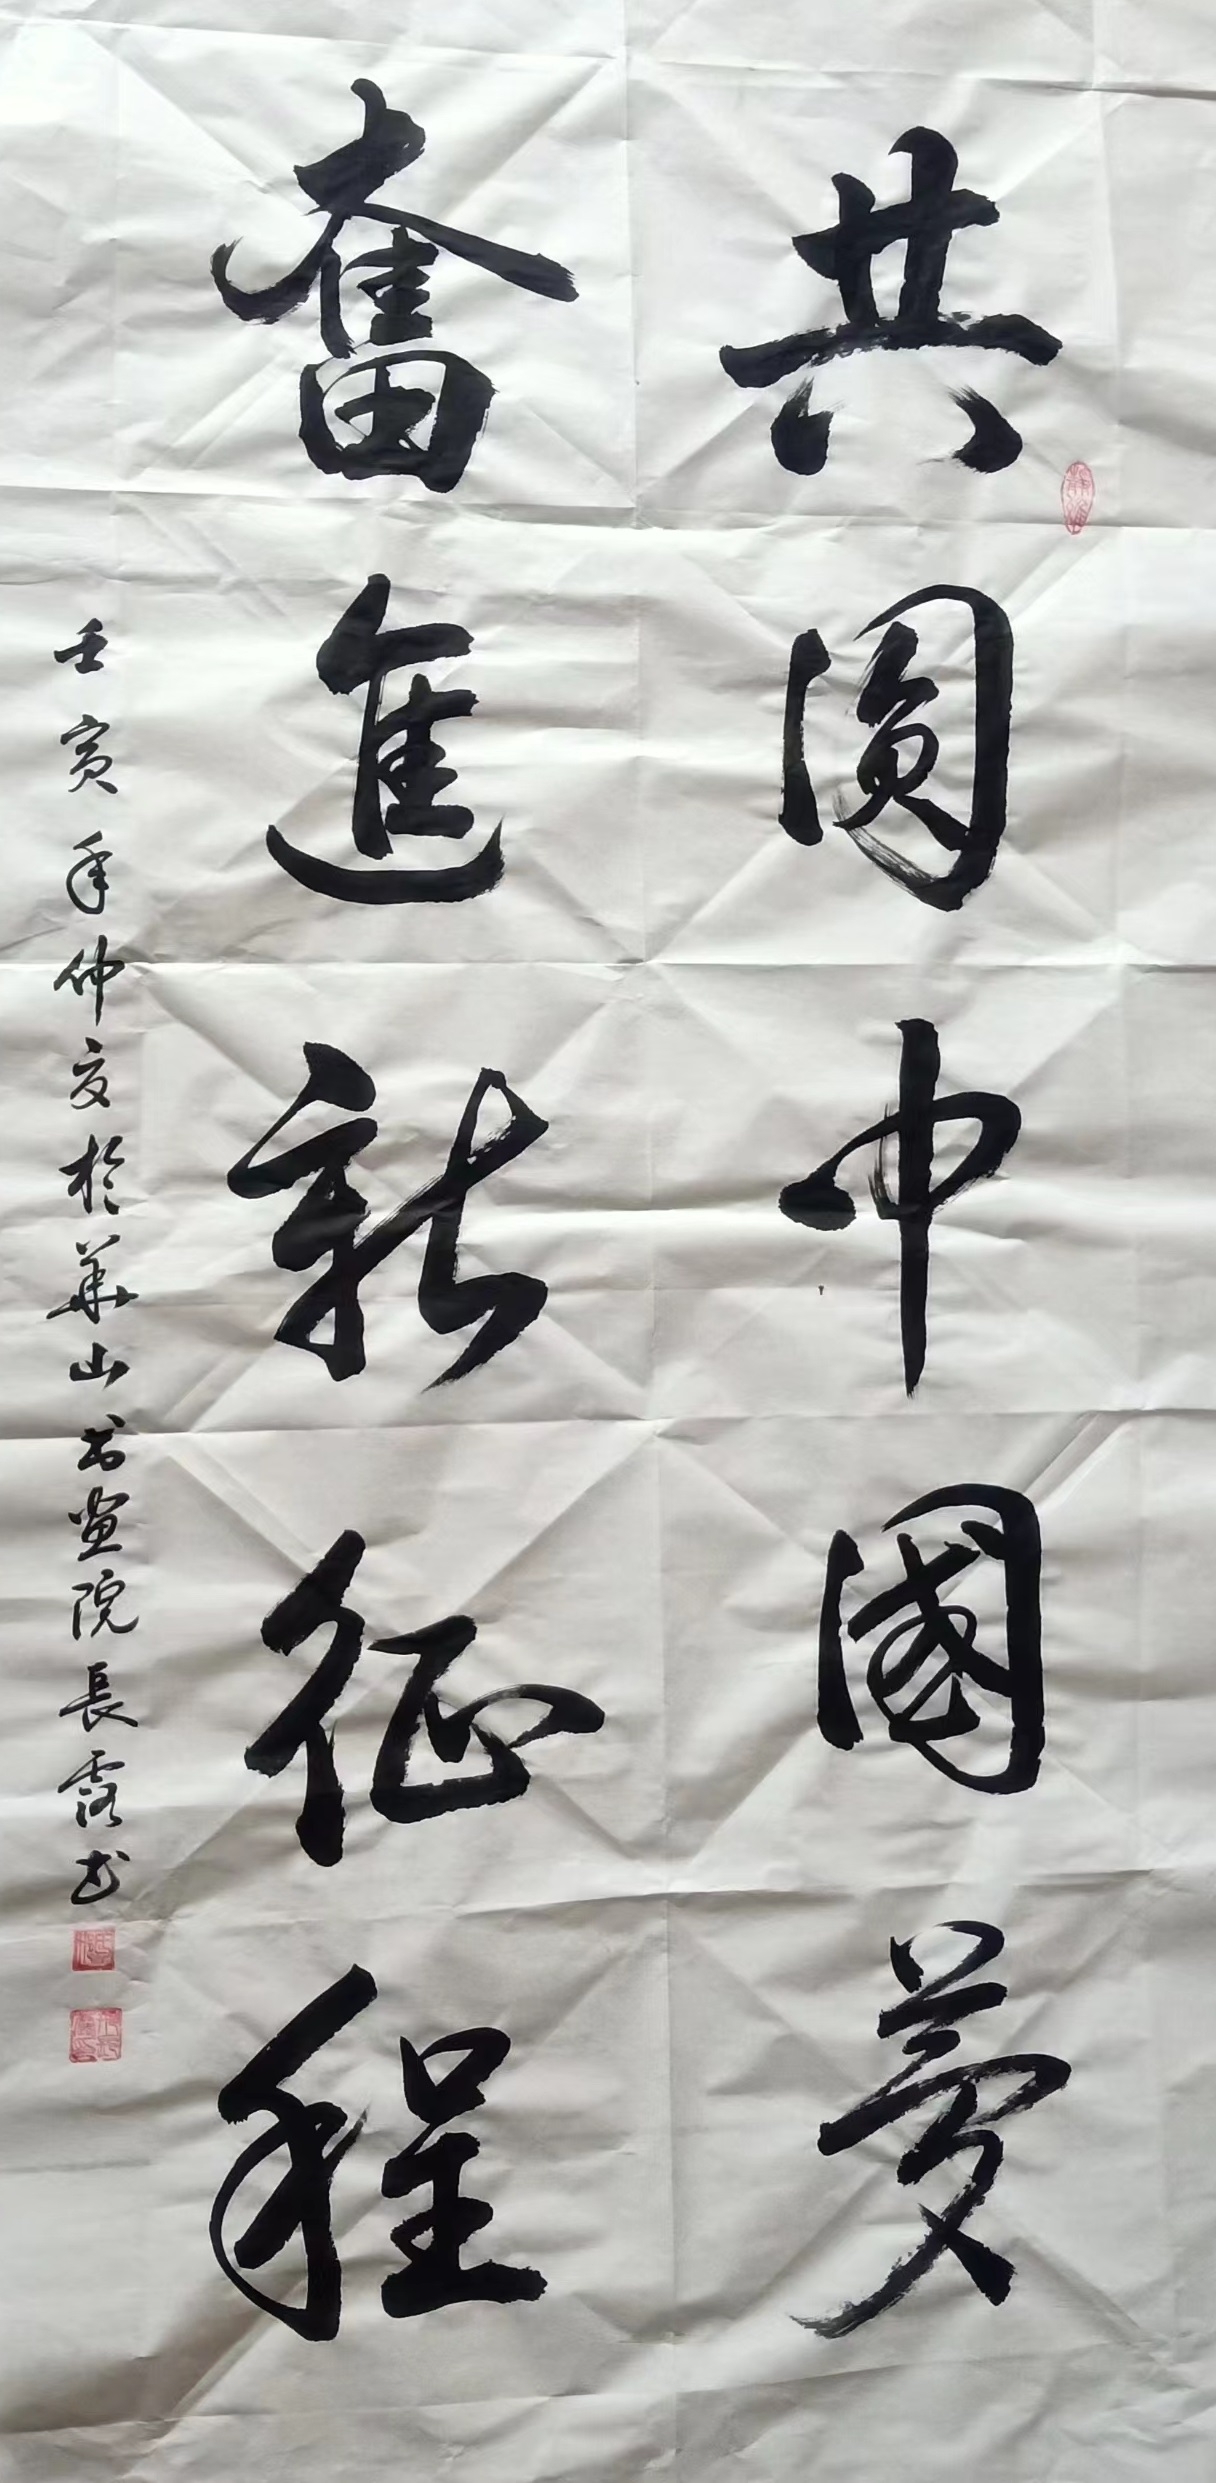 共圓中國夢
奮進新征程
壬寅年仲夏於華山书画院長露书